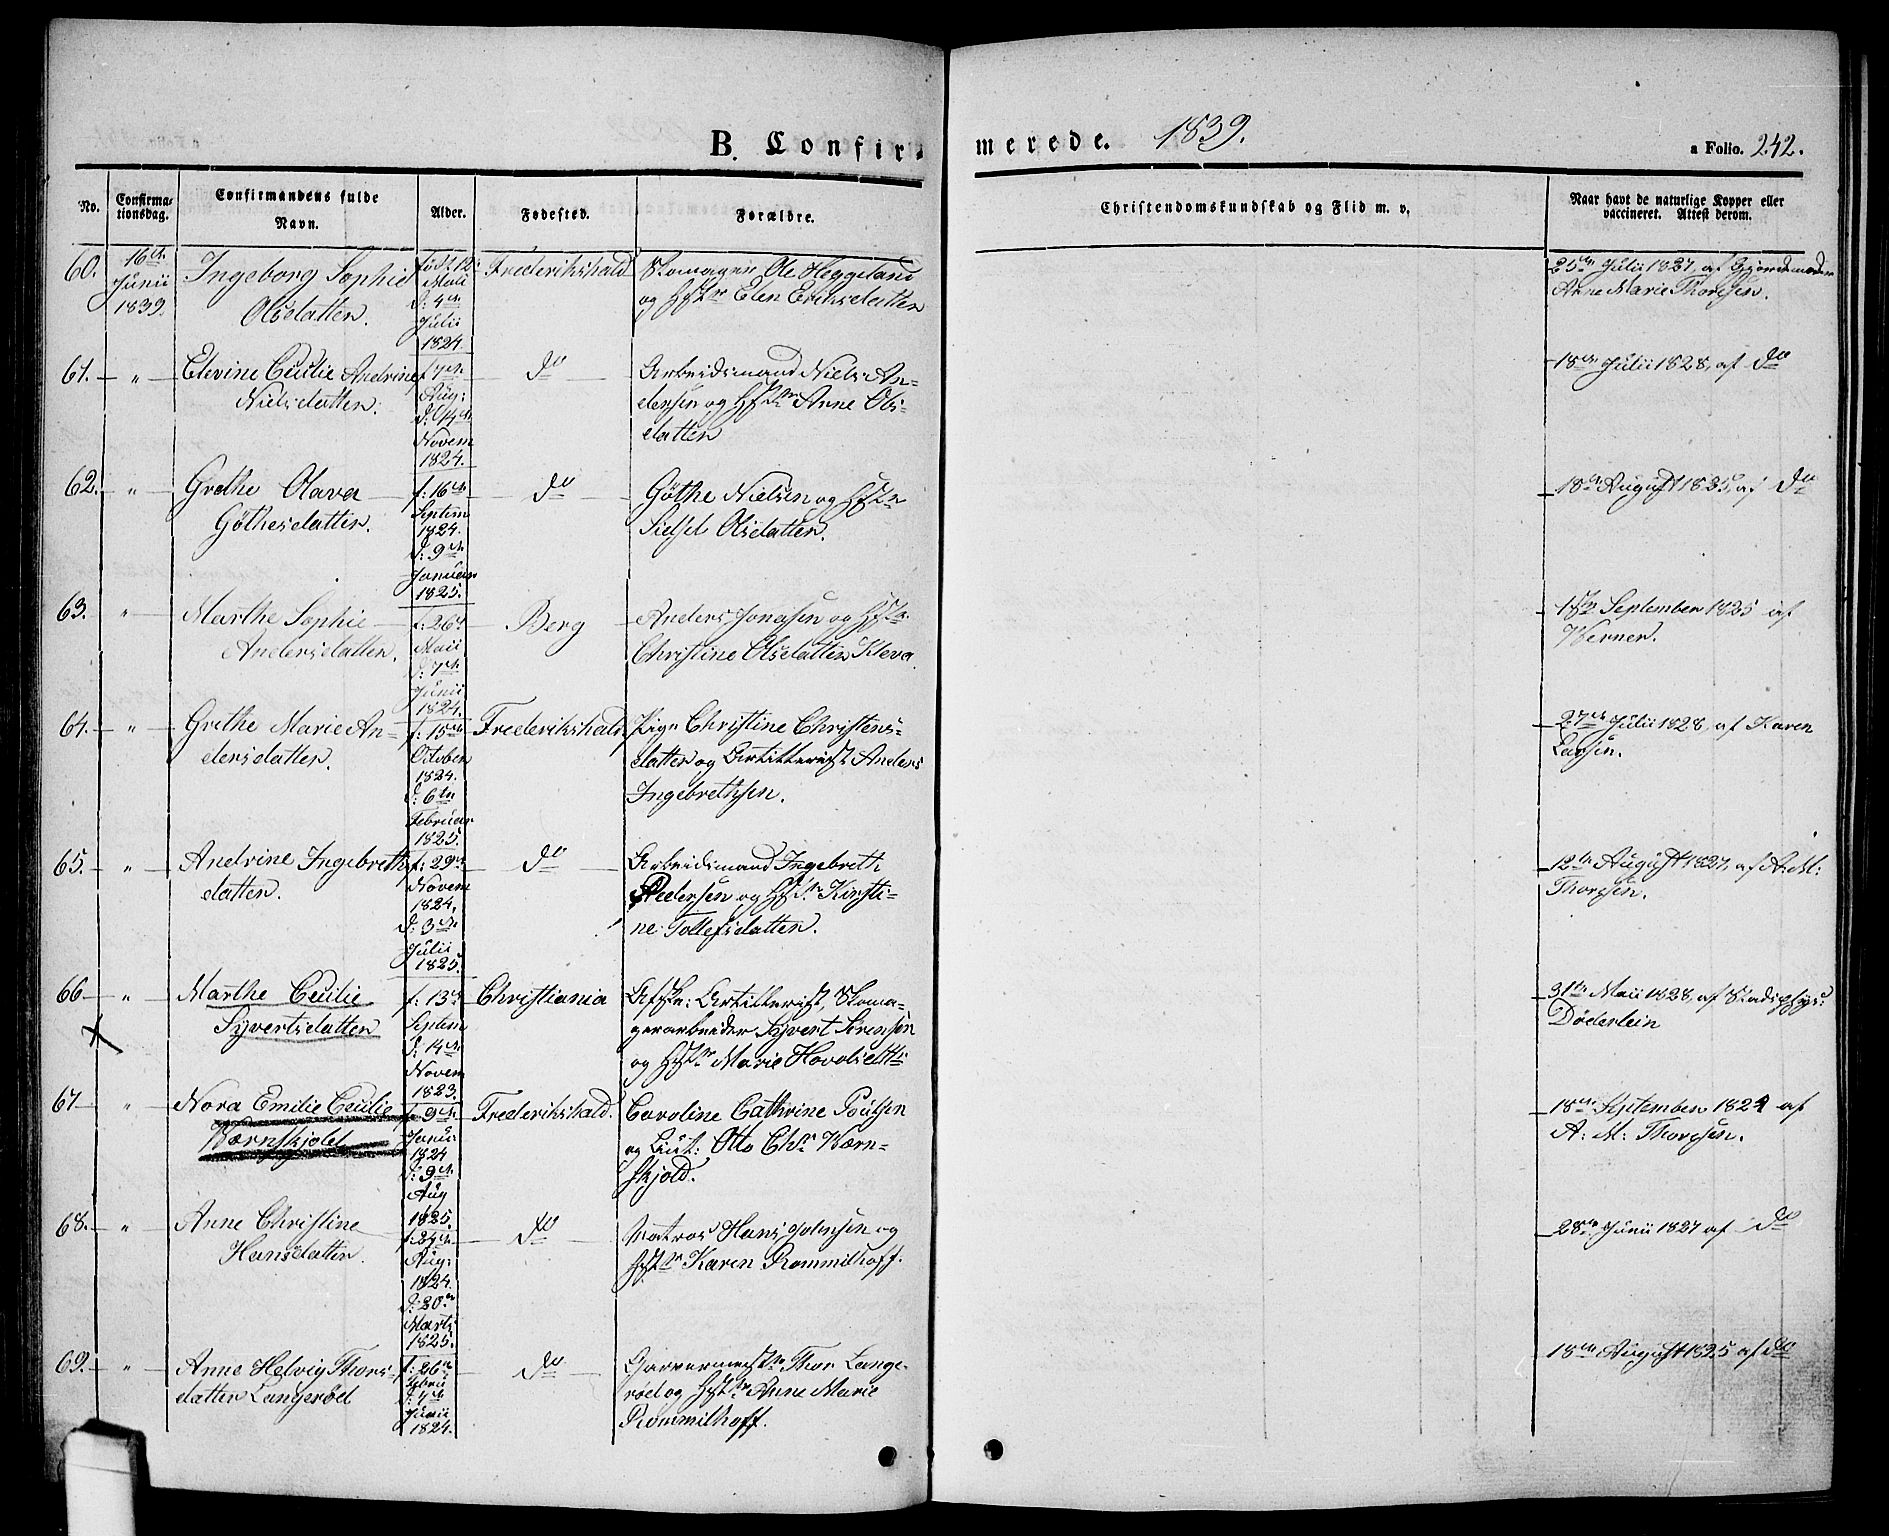 B. Confirmerede. 1839.
a Folio. 242.
No. Confirmationsdag. Confirmandens fulde Navn. Alder. Fødested. Forældre. Christendomskundskab og Flid m. v. Naar havt de naturlige Kopper eller vaccineret. Attest derom.
60. 16de Junii 1839. Ingeborg Sophie Olsdatten. født 12 Maii d: 4de Julii 1824. Frederikshald Skomager Ole Heggeland og Hstr Elen Eriksdatten 25de Julii 1827, af Gjordemoder Anne Marie Thoresen.
61. " Elevine Cecilie Andrine Nielsdatten. f 7de Aug: d: 14de Novem 1824. do Arbeidsmand Niels Andersen og Hstr Anne Olsdatten 18de Julii 1828, af do
62. " Grethe Olava Gøthesdatten. f: 16de Septem 1824. d: 9de Januar 1825. do Gøthe Nielsen og Hstr Sidsel Olsdatten. 18de August 1825, af do
63. " Marthe Sophie Andersdatten. f: 26de Maii d: 7de Junii 1824. Berg Anders Jonasen og Hstr Christine Olsdatten Kleva. September 1825 af Werner.
64. " Grethe Marie Andersdatten. f: 15de October 1824. d: 6te Februar 1825. Frederikshald Pige Christine Christensdatten og Artillerist Anders Ingebrethsen. 27de Julii 1828, af Karen Larsen.
65. " Andrine Ingebrethsdatten. f: 29de Novem 1824. d: 3de Julii 1825. do Arbeidsmand Ingebreth Pedersen og Hstr Kirstine Tollefsdatten. 12te August 1827, af A: M: Thoresen.
66 " Marthe Cecilie Syvertsdatten f: 13de Septem d: 14de Novem 1823. Christiania Afske: Artillerist, Skomagerarbeider Syvert Sørensen og Hstr Marie 31te Maii 1828, af Stadsphys: Døderlein
67 " Nora Emilie Cecilie Wærnskjold f 9de Janu: 1824 d: 9de Aug 1825. Frederikshald. Caroline Cathrine Poulsen og Lieut: Otto Chr Wærnskjold. 18de September 1824 af A: M: Thoresen.
68. " Anne Christine Hansdatten. f: 24de Aug: 1824. d: 20de Marts 1825. do Matros Hans Johnsen og Hstr Karen Rommilhoff. 28de Junii 1827 af do
69. " Anne Helvig Thorsdatten Langerød f: 26de Febru d: 4de Junii 1824. do Garvermester Thor Langerød og Hstr Anne Marie Rommilhoff. 18de August 1825 af do